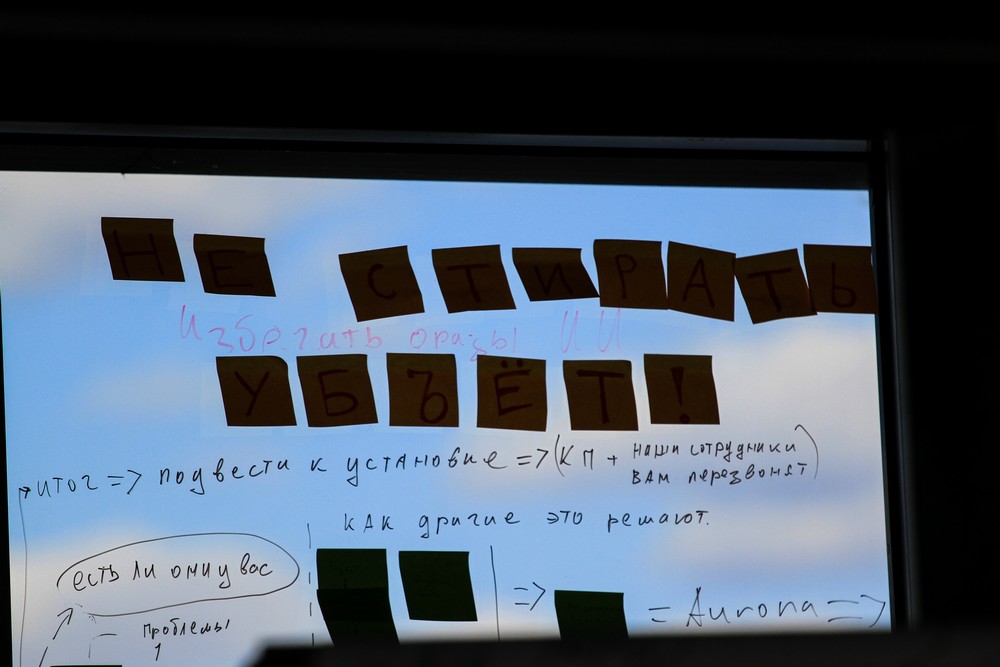 НЕ СТИРАТЬ
Избегать фразы ИИ
УБЪЁТ!
итог => подвести к установке => (КП + наши сотрудники
вам перезвонят)
как другие это решают.
есть ли они у вас
=> = Aurora =>
проблемы
1